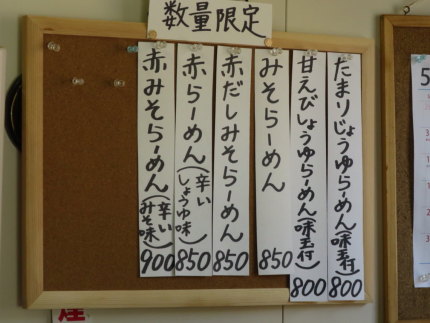 数量限定
たまりじょうゆらーめん(味玉付)800
甘えびしょうゆらーめん(味玉付)800
みそらーめん 850
赤だしみそらーめん 850
赤らーめん(辛いしょうゆ味)850
赤みそらーめん(辛いみそ味)900
5